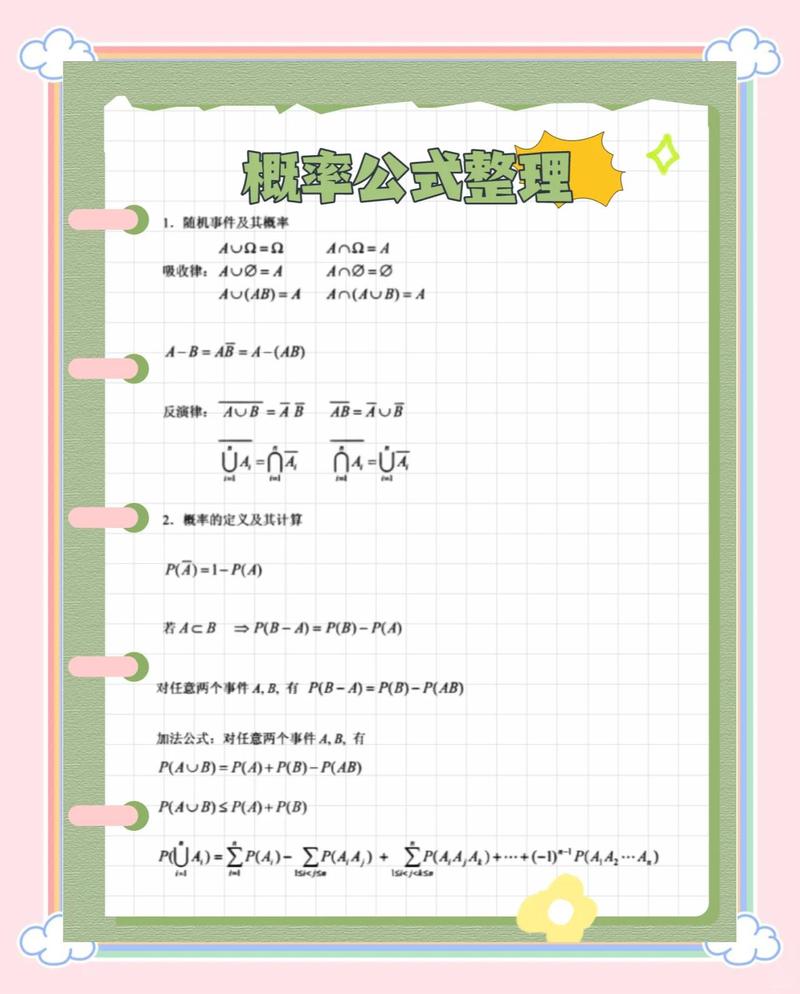 概率公式整理
1. 随机事件及其概率
A∪Ω=Ω A∩Ω=A
吸收律: A∪∅=A A∩∅=∅
A∪(AB)=A A∩(A∪B)=A
A−B=AB̅=A−(AB)
反演律: \overline{A∪B}=A̅ B̅ \overline{AB}=A̅∪B̅
\overline{\bigcup_{i=1}^{n}A_i}=\bigcap_{i=1}^{n}\overline{A_i} \overline{\bigcap_{i=1}^{n}A_i}=\bigcup_{i=1}^{n}\overline{A_i}
2. 概率的定义及其计算
P(A̅)=1−P(A)
若 A⊂B ⇒P(B−A)=P(B)−P(A)
对任意两个事件 A, B, 有 P(B−A)=P(B)−P(AB)
加法公式: 对任意两个事件 A, B, 有
P(A∪B)=P(A)+P(B)−P(AB)
P(A∪B)≤P(A)+P(B)
P(\bigcup_{i=1}^{n}A_i)=\sum_{i=1}^{n}P(A_i)−\sum_{1≤i<j≤n}P(A_iA_j)+\sum_{1≤i<j<k≤n}^{n}P(A_iA_jA_k)+⋯+(−1)^{n−1}P(A_1A_2⋯A_n)